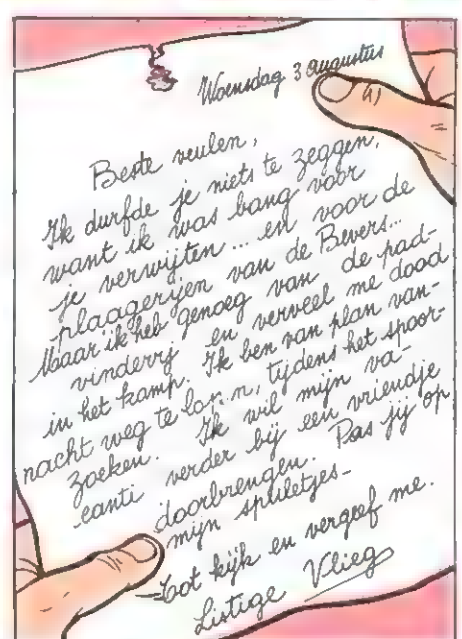 Woensdag 3 augustus
Beste veulen,
Ik durfde je niets te zeggen,
want ik was bang voor
je verwijten ... en voor de
plaagerijen van de Bevers...
Maar ik heb genoeg van de pad-
vinderij en verveel me dood
in het kamp. Ik ben van plan van-
nacht weg te lopen, tijdens het spoor-
zoeken. Ik wil mijn va-
canti verder bij een vriendje
doorbrengen. Pas jij op
mijn spulletjes-
-Tot kijk en vergeef me.
Listige Vlieg